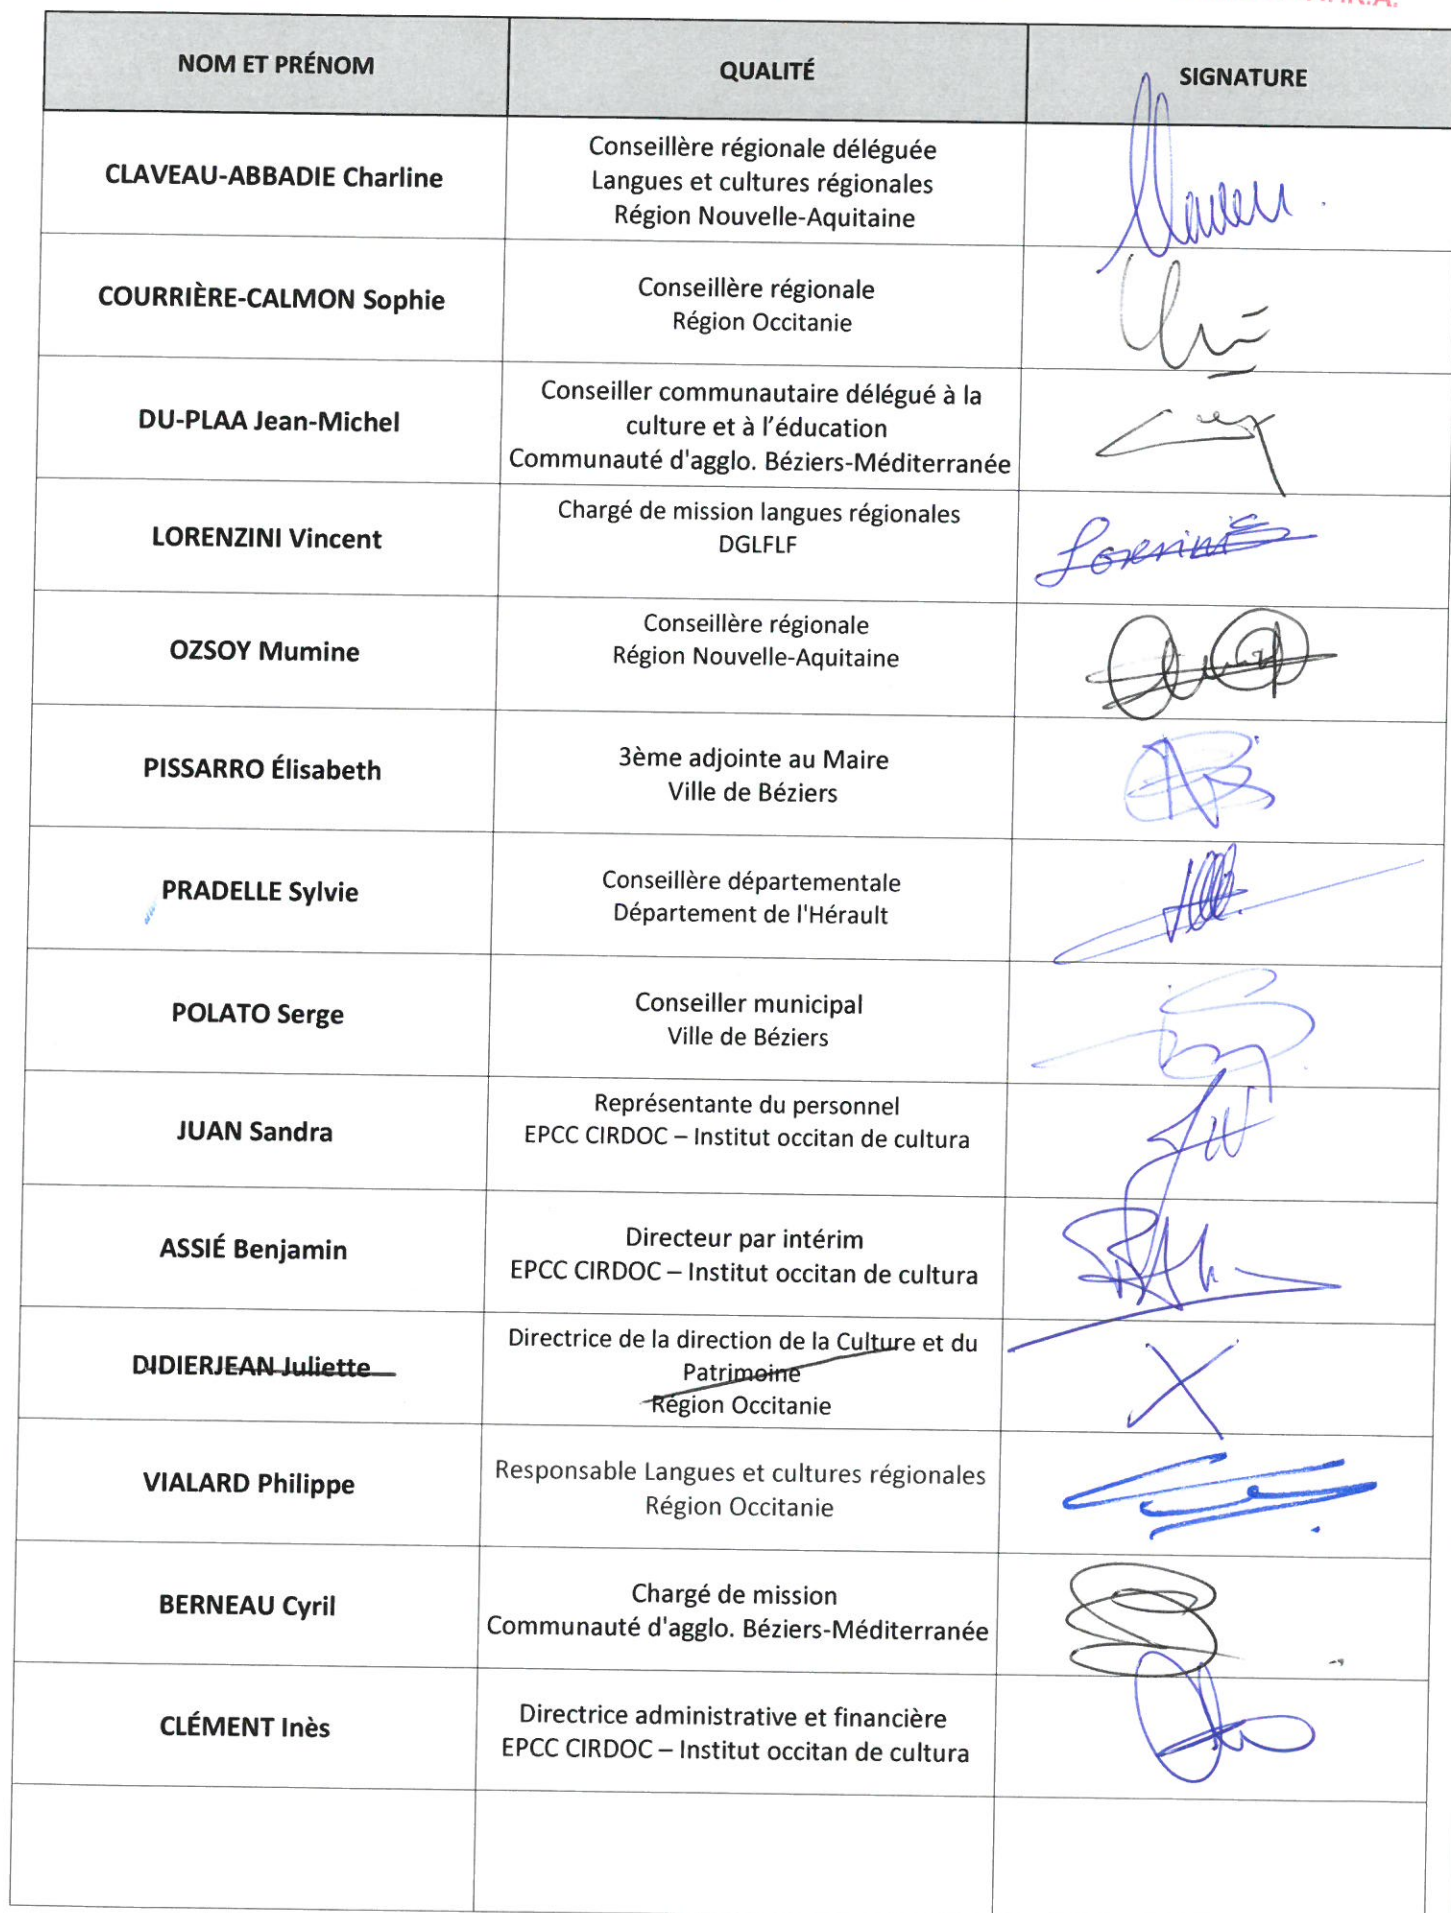 NOM ET PRÉNOM
QUALITÉ
SIGNATURE
CLAVEAU-ABBADIE Charline
Conseillère régionale déléguée
Langues et cultures régionales
Région Nouvelle-Aquitaine
COURRIÈRE-CALMON Sophie
Conseillère régionale
Région Occitanie
DU-PLAA Jean-Michel
Conseiller communautaire délégué à la
culture et à l'éducation
Communauté d'agglo. Béziers-Méditerranée
LORENZINI Vincent
Chargé de mission langues régionales
DGLFLF
OZSOY Mumine
Conseillère régionale
Région Nouvelle-Aquitaine
PISSARRO Élisabeth
3ème adjointe au Maire
Ville de Béziers
PRADELLE Sylvie
Conseillère départementale
Département de l'Hérault
POLATO Serge
Conseiller municipal
Ville de Béziers
JUAN Sandra
Représentante du personnel
EPCC CIRDOC – Institut occitan de cultura
ASSIÉ Benjamin
Directeur par intérim
EPCC CIRDOC – Institut occitan de cultura
DIDIERJEAN Juliette
Directrice de la direction de la Culture et du
Patrimoine
Région Occitanie
VIALARD Philippe
Responsable Langues et cultures régionales
Région Occitanie
BERNEAU Cyril
Chargé de mission
Communauté d'agglo. Béziers-Méditerranée
CLÉMENT Inès
Directrice administrative et financière
EPCC CIRDOC – Institut occitan de cultura